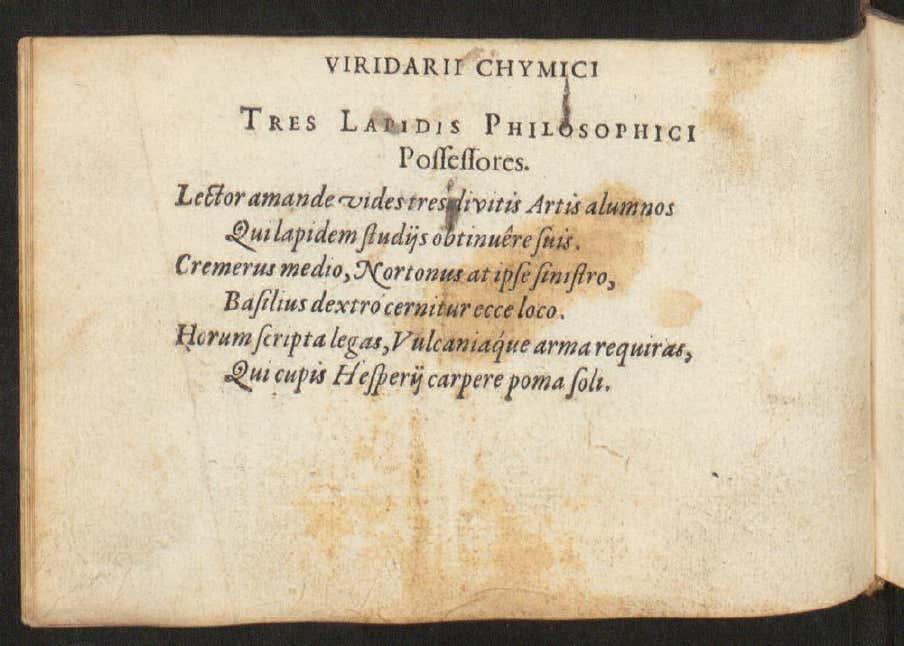 VIRIDARII CHYMICI
TRES LAPIDIS PHILOSOPHICI
Poſſeſſores.
Lector amande vides tres divitis Artis alumnos
Qui lapidem ſtudijs obtinuêre ſuis.
Cremerus medio, Nortonus at ipſe ſiniſtro,
Baſilius dextro cernitur ecce loco.
Horum ſcripta legas, Vulcaniáque arma requiras,
Qui cupis Heſperij carpere poma ſoli.